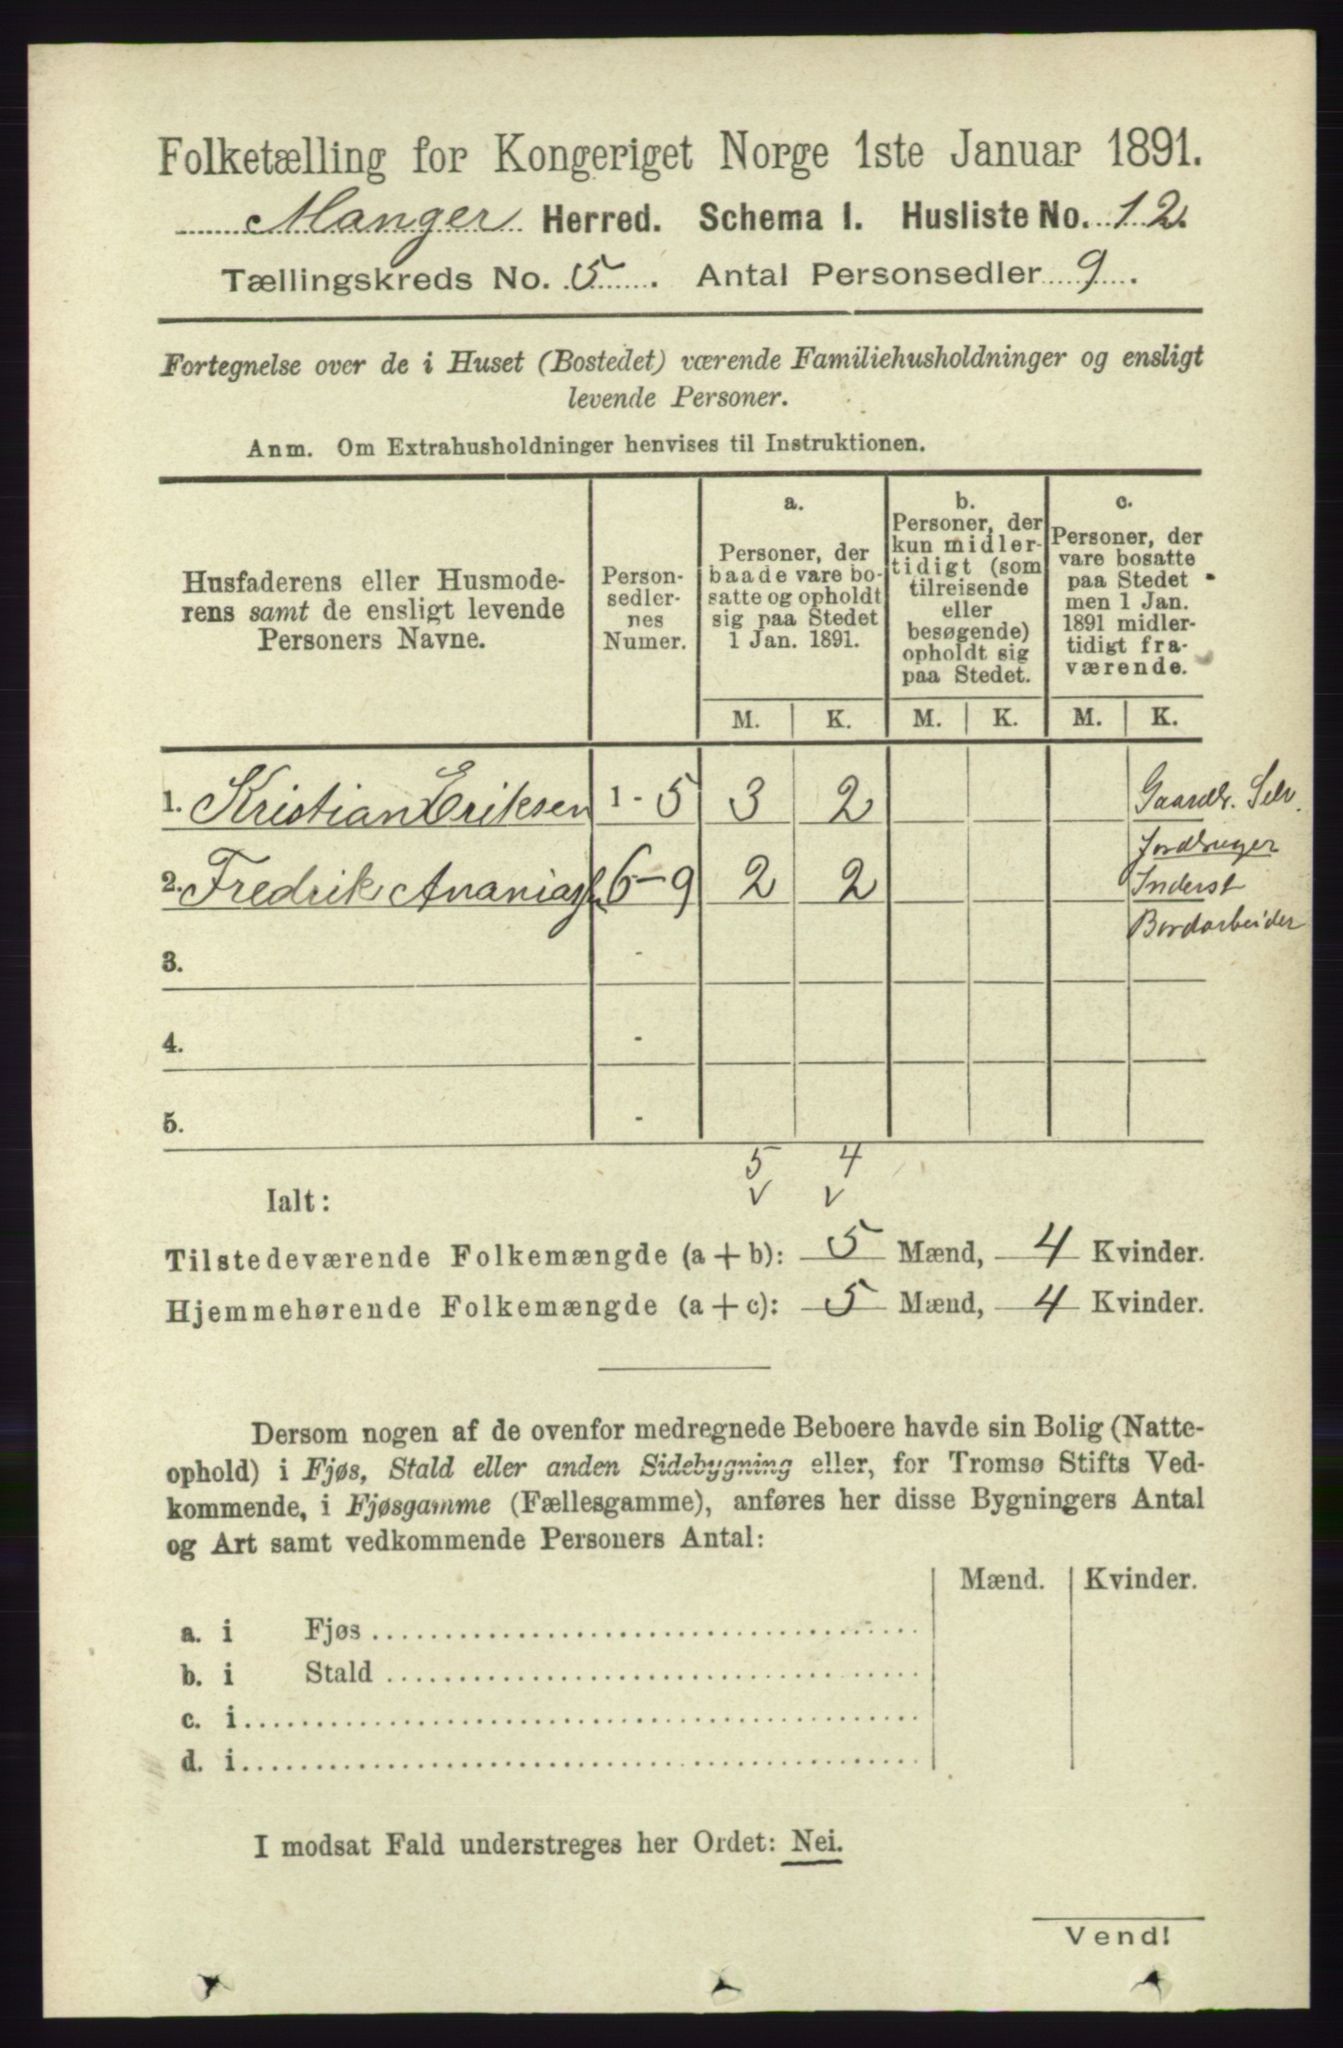 Folketælling for Kongeriget Norge 1ste Januar 1891.
Manger Herred. Schema I. Husliste No. 12.
Tællingskreds No. 5. Antal Personsedler 9.
Fortegnelse over de i Huset (Bostedet) værende Familiehusholdninger og ensligt
levende Personer.
Anm. Om Extrahusholdninger henvises til Instruktionen.
Husfaderens eller Husmode-
rens samt de ensligt levende
Personers Navne.
Person-
sedler-
nes
Numer.
a.
Personer, der
baade vare bo-
satte og opholdt
sig paa Stedet
1 Jan. 1891.
b.
Personer, der
kun midler-
tidigt (som
tilreisende
eller
besøgende)
opholdt sig
paa Stedet.
c.
Personer, der
vare bosatte
paa Stedet
men 1 Jan.
1891 midler-
tidigt fra-
værende.
M. K. M. K. M. K.
1. Kristian Eriksen 1 - 5 3 2 Gaardbr. Selv.
Jordbruger
2. Fredrik Ananiass. 6-9 2 2 Inderst
Bordarbeider
3. -
4. -
5. -
5 4
v v
Ialt:
Tilstedeværende Folkemængde (a + b): 5 Mænd, 4 Kvinder.
Hjemmehørende Folkemængde (a + c): 5 Mænd, 4 Kvinder.
Dersom nogen af de ovenfor medregnede Beboere havde sin Bolig (Natte-
ophold) i Fjøs, Stald eller anden Sidebygning eller, for Tromsø Stifts Ved-
kommende, i Fjøsgamme (Fællesgamme), anføres her disse Bygningers Antal
og Art samt vedkommende Personers Antal:
Mænd. Kvinder.
a. i Fjøs
b. i Stald
c. i
d. i
I modsat Fald understreges her Ordet: Nei.
Vend!